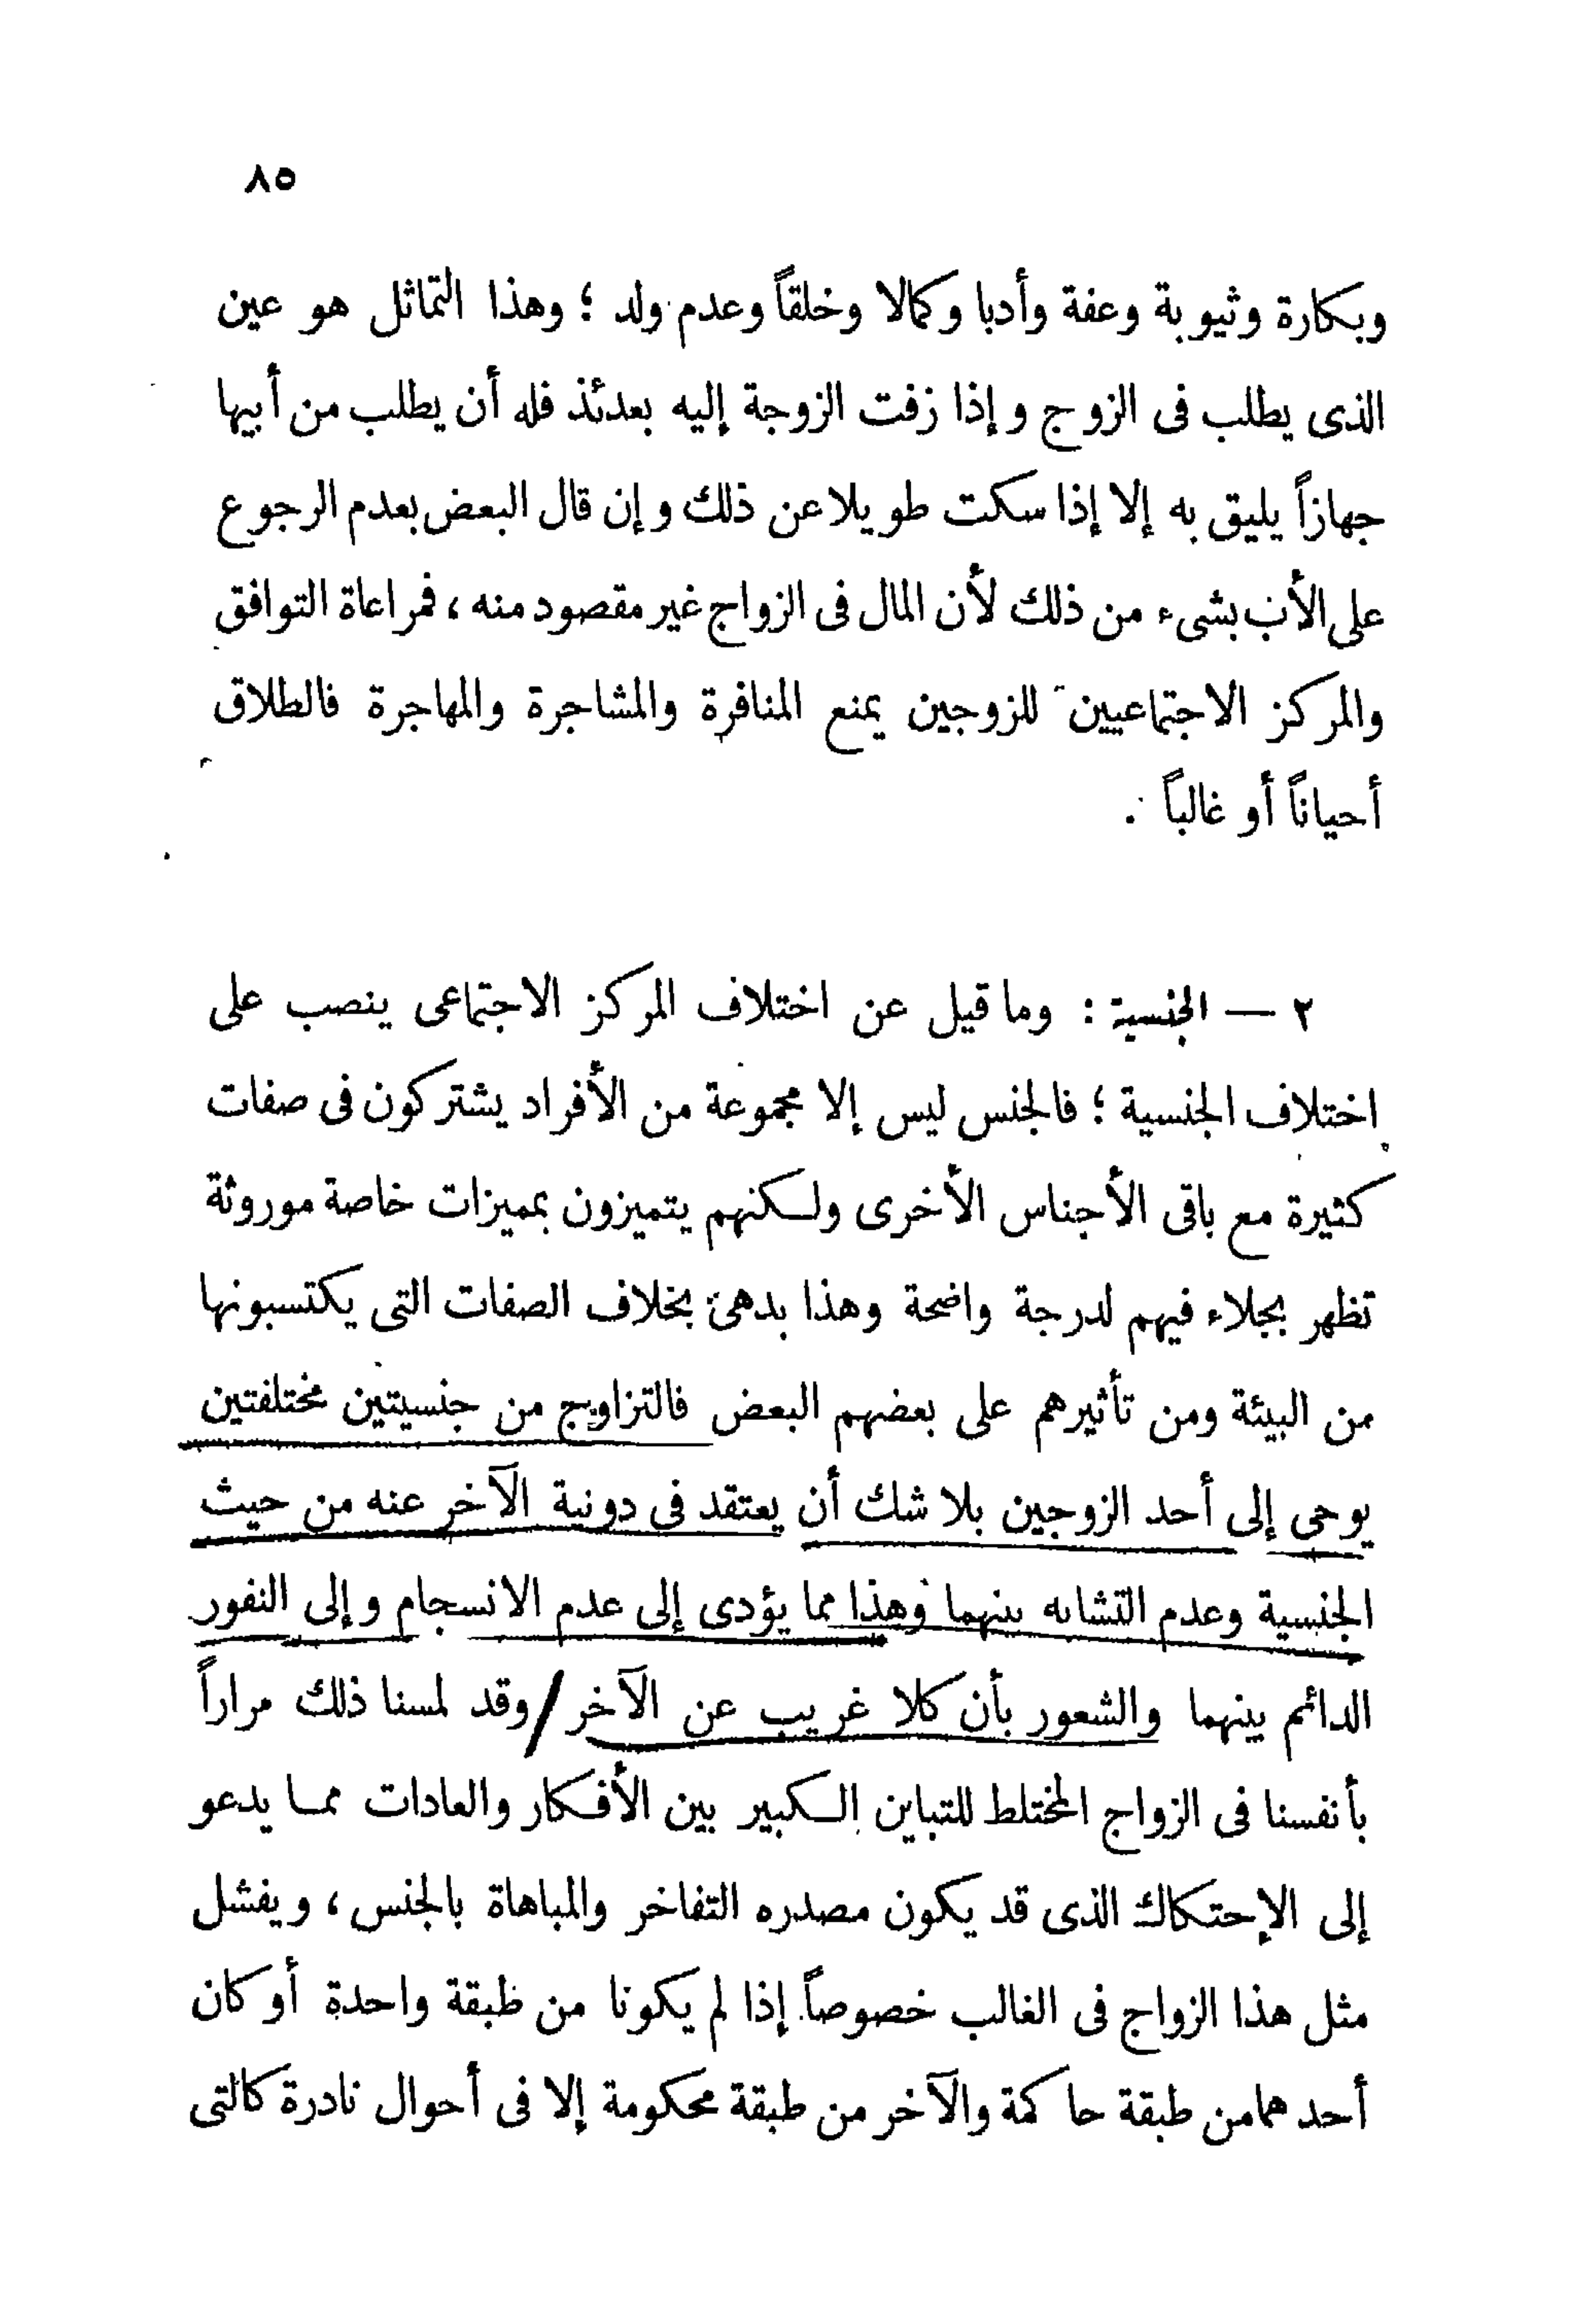 ٨٥
وبكارة وثيوبة وعفة وأدبا وكمالا وخلقاً وعدم ولد ؛ وهذا التماثل هو عين
الذى يطلب فى الزوج وإذا زفت الزوجة إليه بعدئذ فله أن يطلب من أبيها
جهازاً يليق به إلا إذا سكت طويلا عن ذلك وإن قال البعض بعدم الرجوع
على الأب بشىء من ذلك لأن المال فى الزواج غير مقصود منه ، فمراعاة التوافق
والمركز الاجتماعيين للزوجين يمنع المنافرة والمشاجرة والمهاجرة فالطلاق
أحياناً أو غالباً .
٢ — الجنسية : وما قيل عن اختلاف المركز الاجتماعى ينصب على
اختلاف الجنسية ؛ فالجنس ليس إلا مجموعة من الأفراد يشتركون فى صفات
كثيرة مع باقى الأجناس الأخرى ولكنهم يتميزون بمميزات خاصة موروثة
تظهر بجلاء فيهم لدرجة واضحة وهذا بدهىّ بخلاف الصفات التى يكتسبونها
من البيئة ومن تأثيرهم على بعضهم البعض فالتزاوج من جنسيتين مختلفتين
يوحى إلى أحد الزوجين بلا شك أن يعتقد فى دونية الآخر عنه من حيث
الجنسية وعدم التشابه بينهما وهذا مما يؤدى إلى عدم الانسجام وإلى النفور
الدائم بينهما والشعور بأن كلا غريب عن الآخر / وقد لمسنا ذلك مراراً
بأنفسنا فى الزواج المختلط للتباين الكبير بين الأفكار والعادات مما يدعو
إلى الإحتكاك الذى قد يكون مصدره التفاخر والمباهاة بالجنس ، ويفشل
مثل هذا الزواج فى الغالب خصوصاً إذا لم يكونا من طبقة واحدة أو كان
أحدهما من طبقة حاكمة والآخر من طبقة محكومة إلا فى أحوال نادرة كالتى